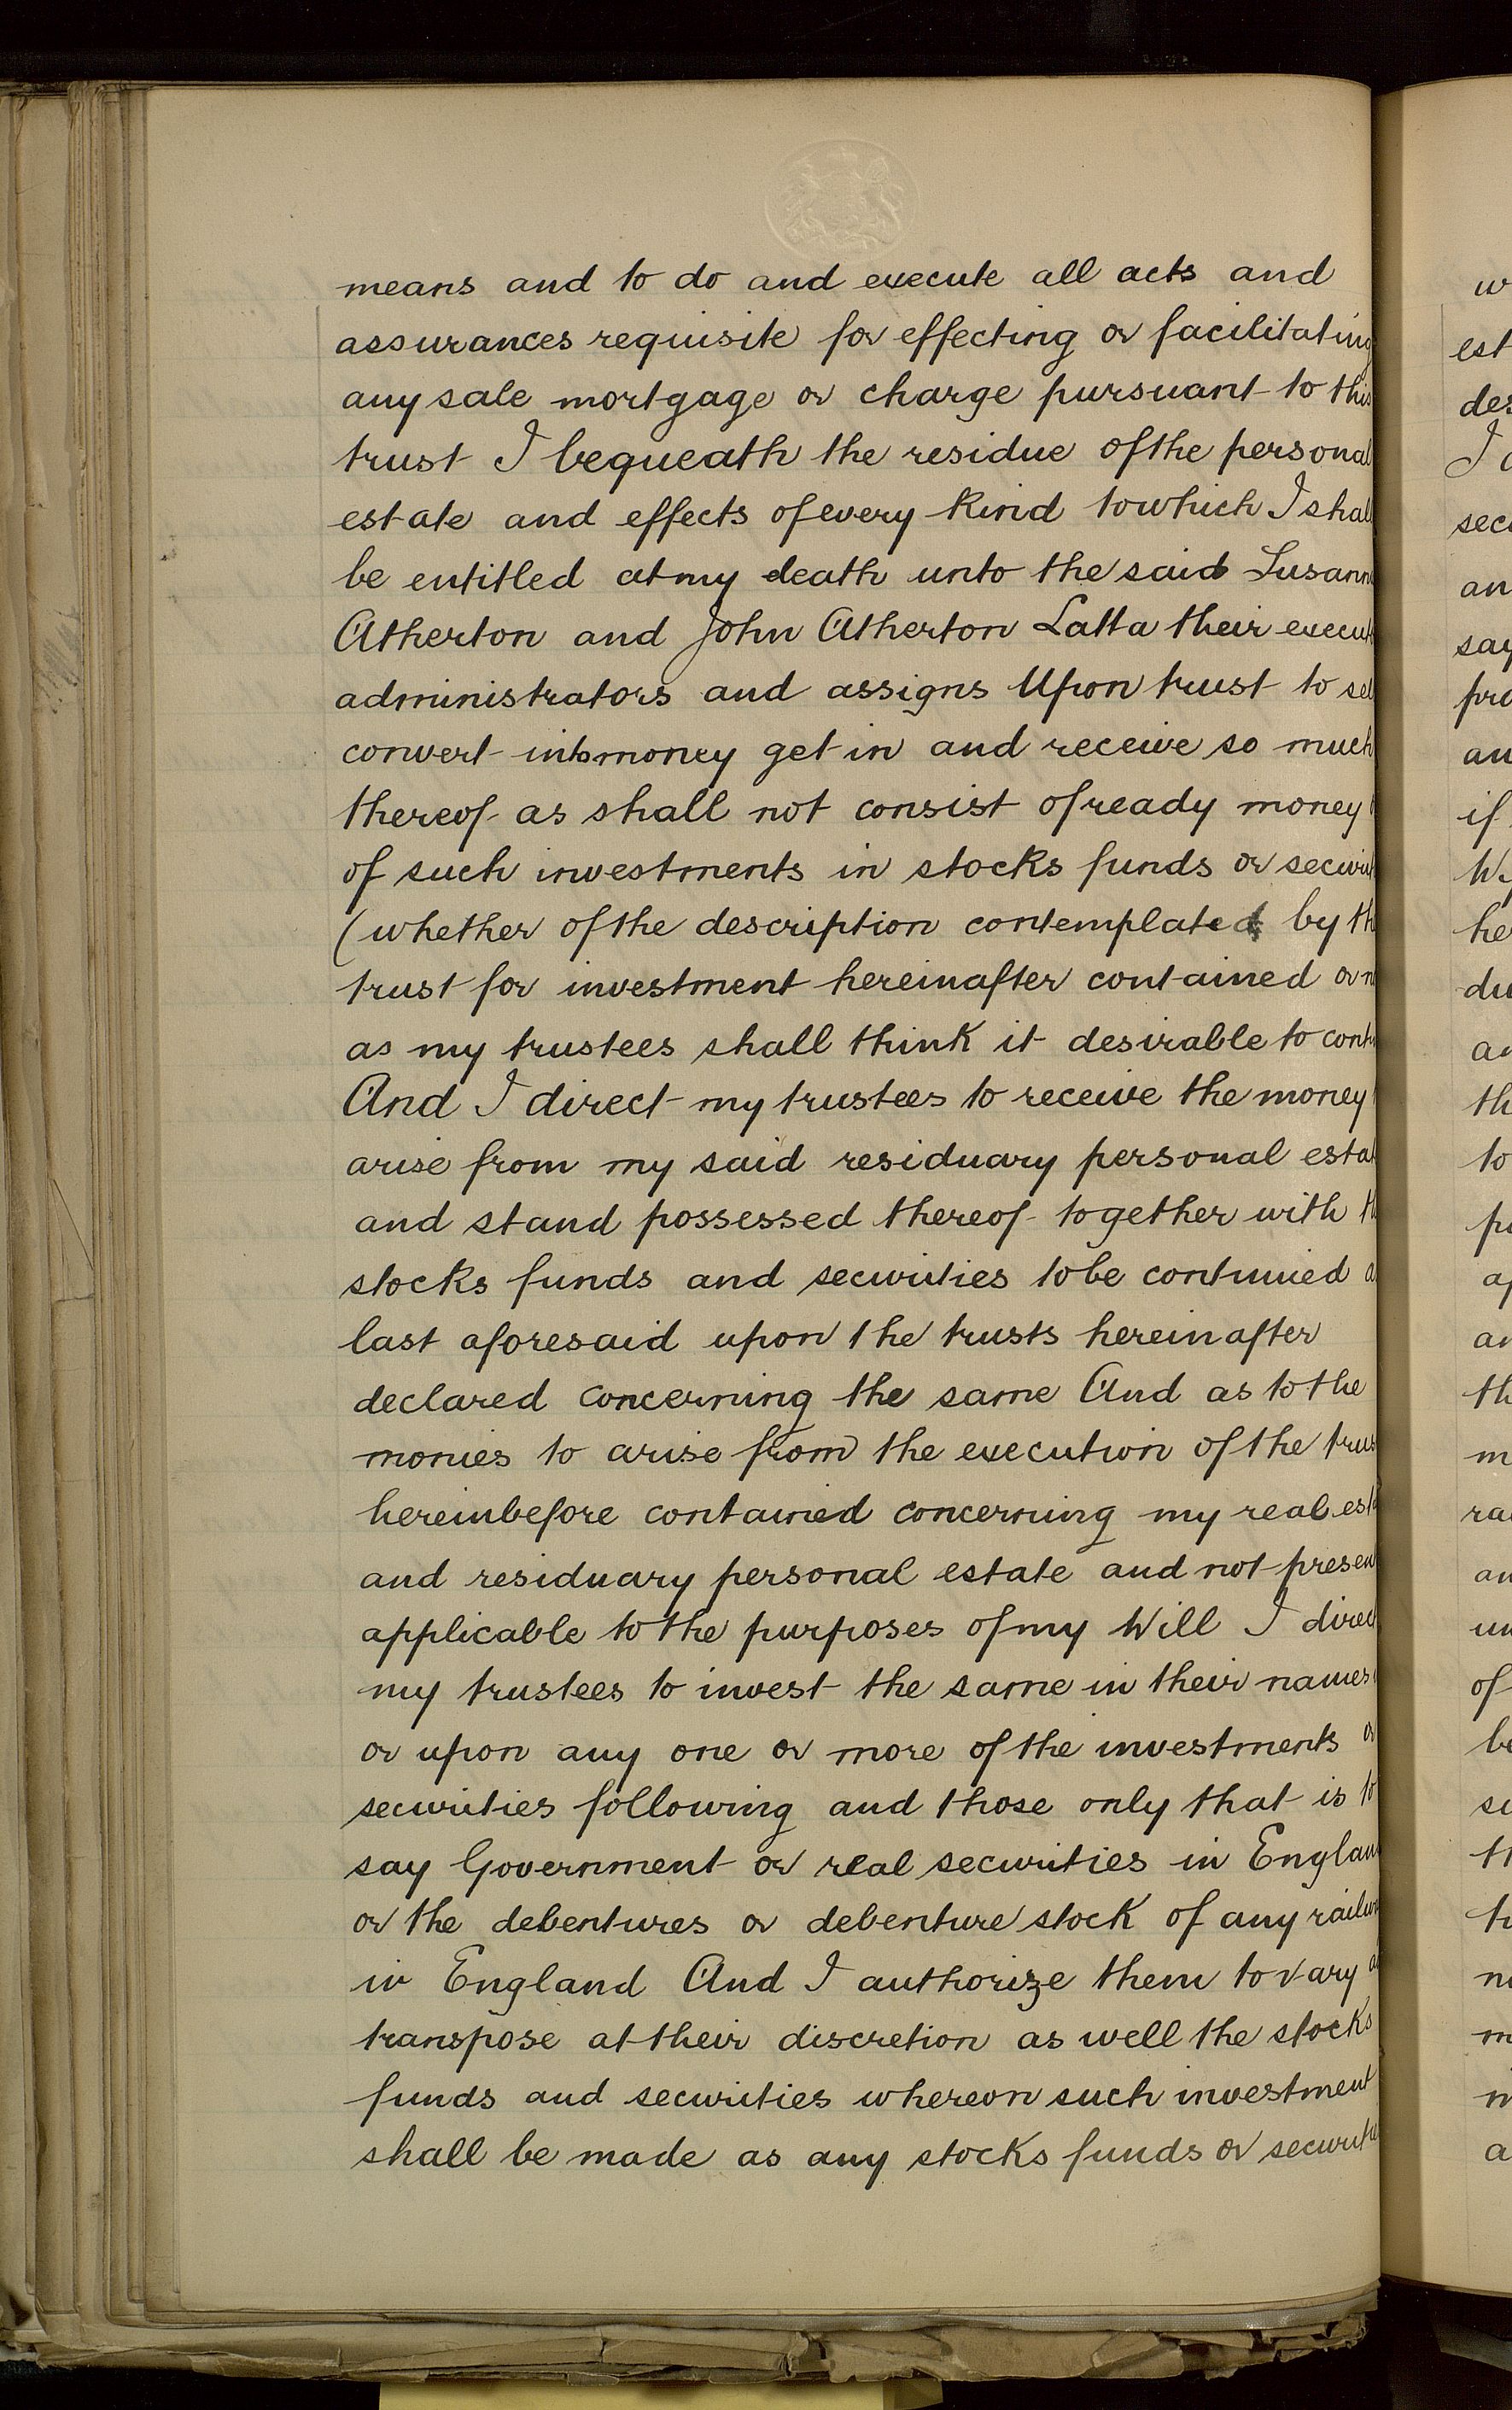 means and to do and execute all acts and
assurances requisite for effecting or facilitating
any sale mortgage or charge pursuant to this
trust I bequeath the residue of the personal
estate and effects of every kind to which I shall
be entitled at my death unto the said Susann
Atherton and John Atherton Latta their execut
administrators and assigns Upon trust to sel
convert into money get in and receive so much
thereof as shall not consist of ready money
of such investments in stocks funds or securit
(whether of the description contemplated by th
trust for investment hereinafter contained or n
as my trustees shall think it desirable to cont
And I direct my trustees to receive the money
arise from my said residuary personal estat
and stand possessed thereof together with th
stocks funds and securities to be continued a
last aforesaid upon the trusts hereinafter
declared concerning the same And as to the
monies to arise from the execution of the trus
hereinbefore contained concerning my real est
and residuary personal estate and not presen
applicable to the purposes of my Will I direct
my trustees to invest the same in their names
or upon any one or more of the investments or
securities following and those only that is to
say Government or real securities in Englan
or the debentures or debenture stock of any railw
in England And I authorize them to vary a
transpose at their discretion as well the stocks
funds and securities whereon such investment
shall be made as any stocks funds or securitie
w
est
des
I
sec
an
say
pro
an
if
W.
he
du
an
th
to
p
ap
an
th
m
ra
an
un
of
be
se
th
tr
no
m
in
a